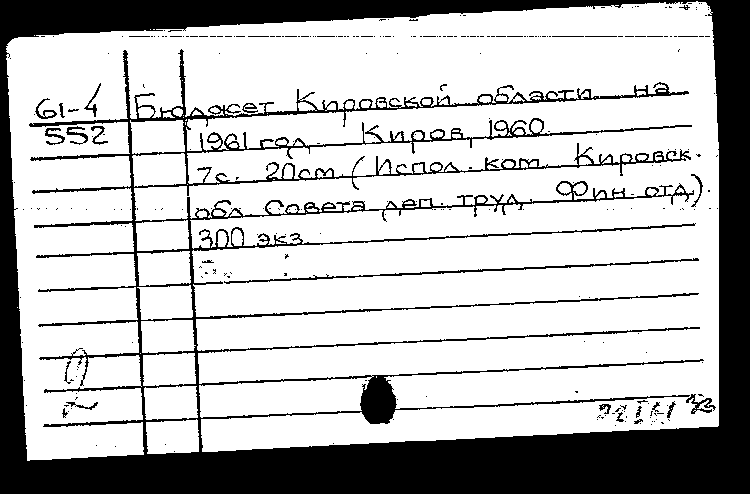 61-4 Бюджет Кировской области на
552 1961 год. Киров, 1960.
7с. 20см (Испол. ком. Кировск.
обл Совета деп. труд. Фин. отд.).
300 экз.